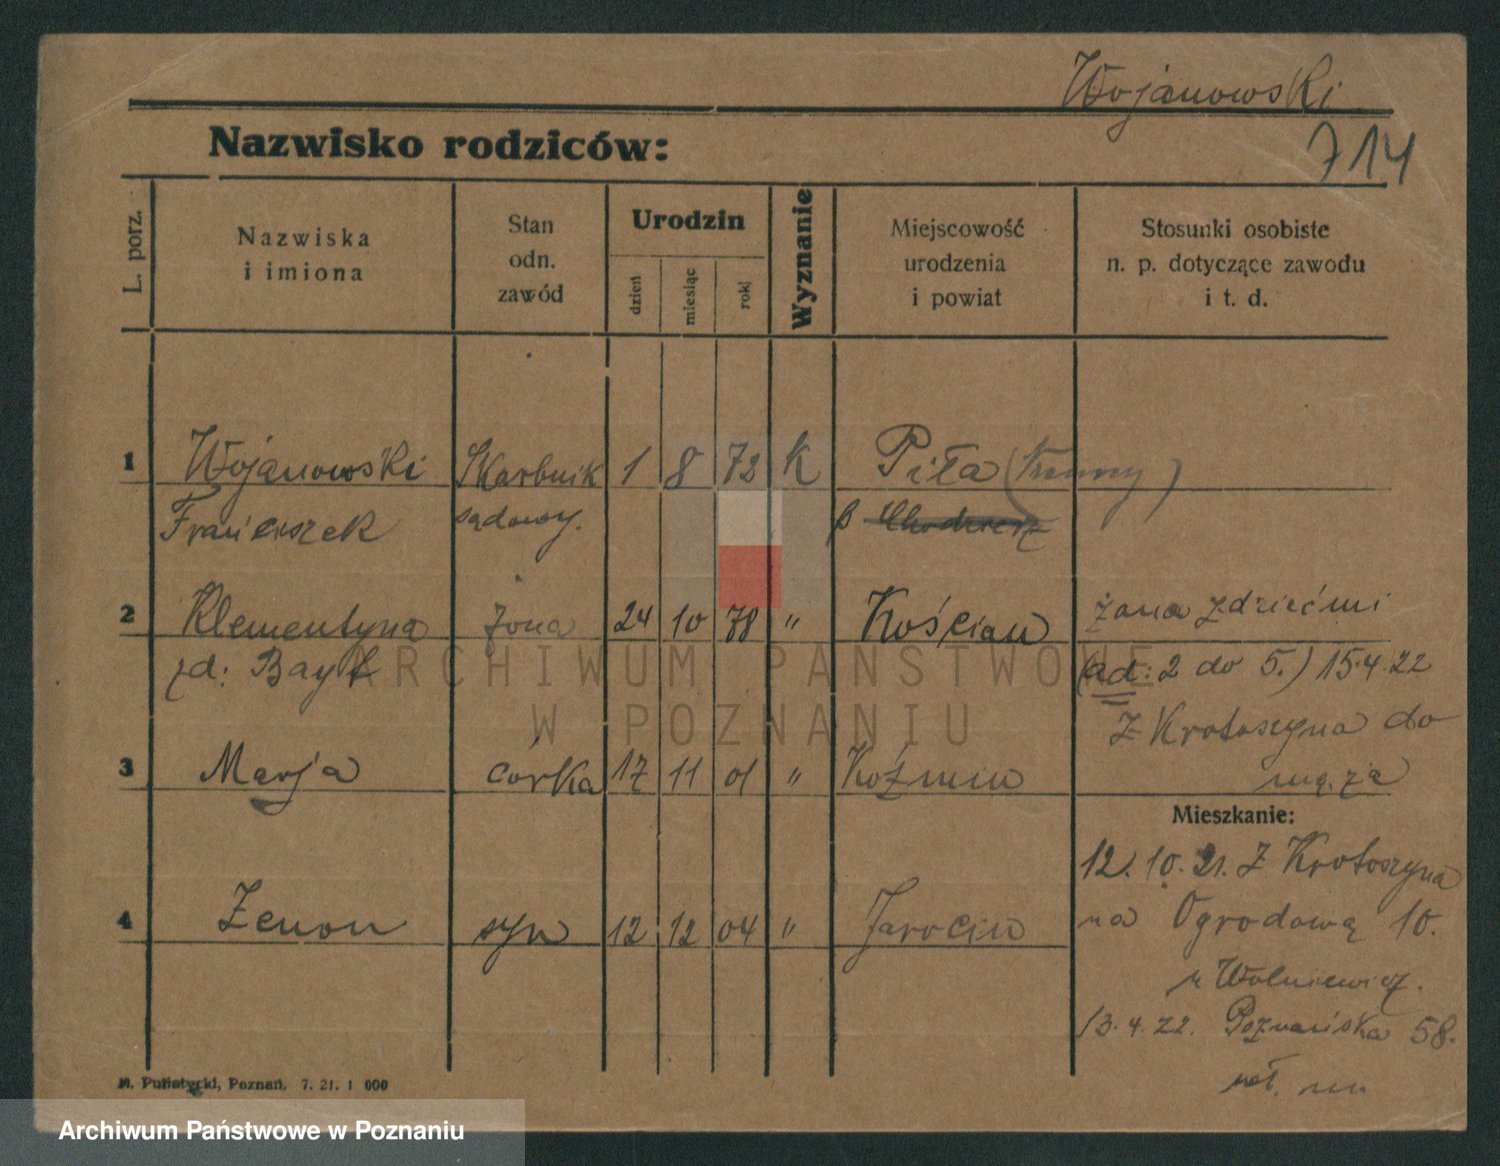 Wojanowski
714
Nazwisko rodziców:
L. porz.
Nazwiska
i imiona
Stan
odn.
zawód
Urodzin
dzień
miesiąc
rok
Wyznanie
Miejscowość
urodzenia
i powiat
Stosunki osobiste
n. p. dotyczące zawodu
i t. d.
1 Wojanowski Skarbnik 1 8 72 k Piła
Franciszek sądowy.
2 Klementyna żona 24 10 78 " Kościan
zd:
żona z dziećmi
(ad: 2 do 5.) 15.4.22
z Krotoszyna do
męża
3 Marja córka 17 11 01 " Koźmin
Mieszkanie:
12.10.21. z Krotoszyna
na Ogrodową 10.
u Wolniewicz.
13.4.22. Poznańska 58.
4 Zenon syn 12 12 04 " Jarocin
Poznań. 7. 21. 1 000
ARCHIWUM PAŃSTWOWE
W POZNANIU
Archiwum Państwowe w Poznaniu